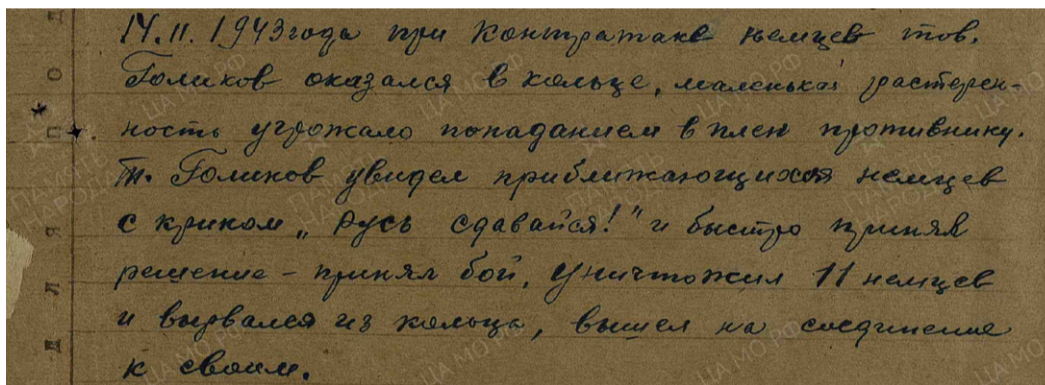 14.11.1943 года при контратаке немцев тов.
Голиков оказался в кольце, маленькая растерен-
ность угрожало попаданием в плен противнику.
т. Голиков увидел приближающихся немцев
с криком „Русь сдавайся!" и быстро принял
решение - принял бой, уничтожил 11 немцев
и вырвался из кольца, вышел на соединение
к своим.